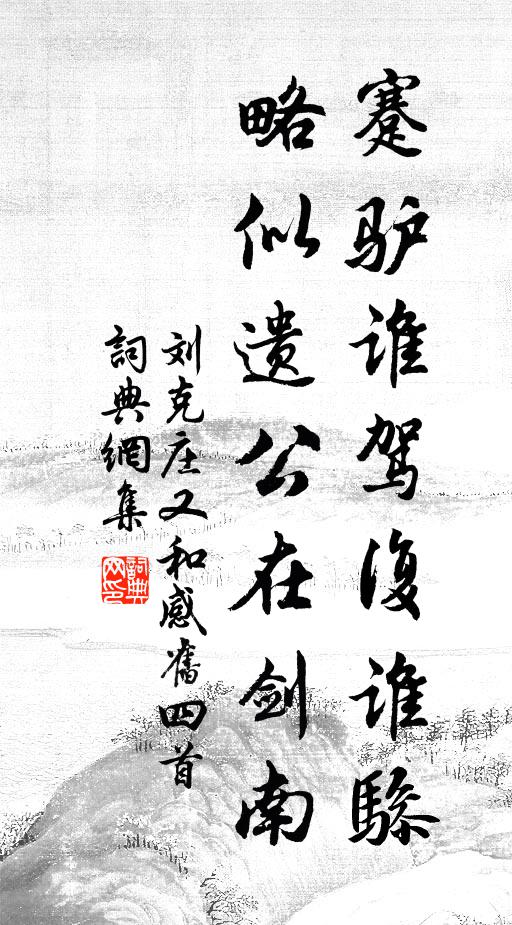 蹇驴谁驾复谁骖
略似遗公在剑南
刘克庄又和感旧四首
詞典網集
詞典
网印